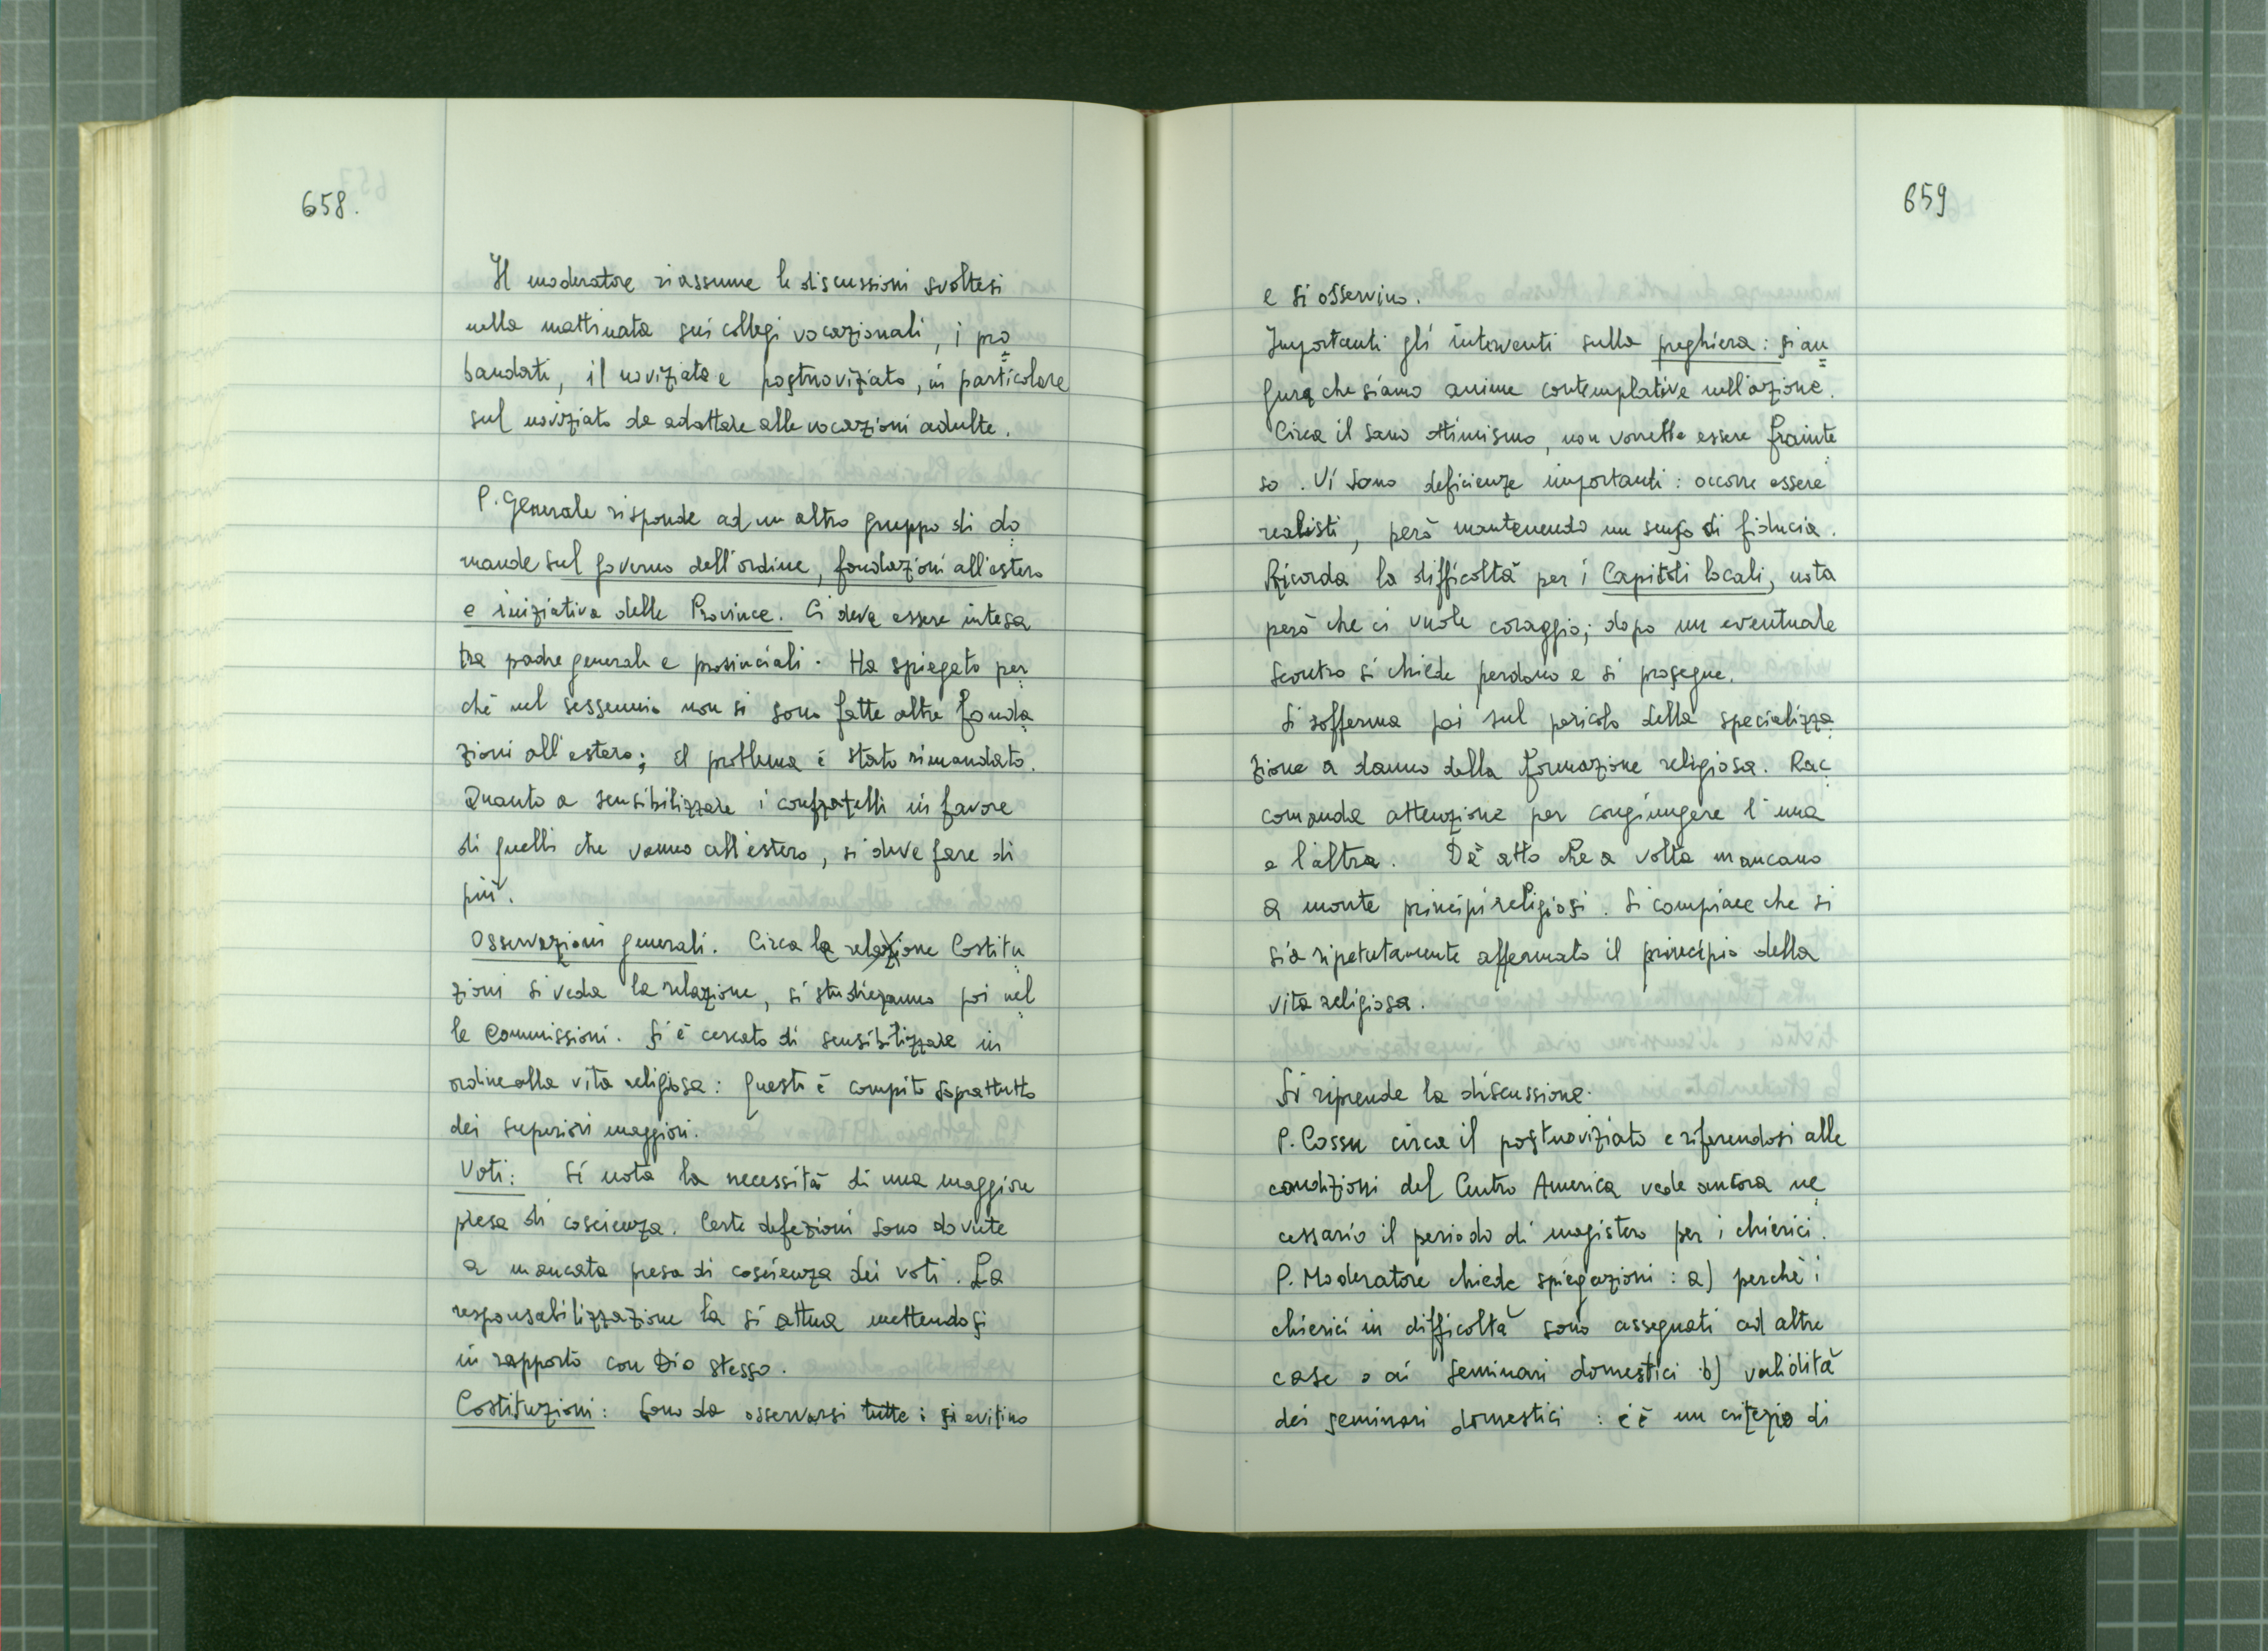 658.
Il moderatore riassume le discussioni svoltesi
nella mattinata sui collegi vocazionali, i pro=
bandati, il noviziato e postnoviziato, in particolare
sul noviziato da adattare alle vocazioni adulte.
P. Generale risponde ad un altro gruppo di do=
mande sul governo dell'ordine, fondazioni all'estero
e iniziativa delle Province. Ci deve essere intesa
tra padre generale e provinciali. Ha spiegato per=
chè nel sessennio non si sono fatte altre fonda=
zioni all'estero; il problema è stato rimandato.
Quanto a sensibilizzare i confratelli in favore
di quelli che vanno all'estero, si deve fare di
più.
Osservazioni generali. Circa le relazione Costitu=
zioni si veda la relazione, si studieranno poi nel=
le Commissioni. Si è cercato di sensibilizzare in
ordine alla vita religiosa: questo è compito soprattutto
dei superiori maggiori.
Voti: Si nota la necessità di una maggiore
presa di coscienza. Certe defezioni sono dovute
a mancata presa di coscienza dei voti. La
responsabilizzazione la si attua mettendosi
in rapporto con Dio stesso.
Costituzioni: Sono da osservarsi tutte: si evitino
659
e si osservino.
Importanti gli interventi sulla preghiera: si au=
gura che siamo anime contemplative nell'azione.
Circa il sano ottimismo, non vorrebbe essere frainte=
so. Vi sono deficienze importanti: occorre essere
realisti, però mantenendo un senso di fiducia.
Ricorda la difficoltà per i Capitoli locali, nota
però che ci vuole coraggio; dopo un eventuale
scontro si chiede perdono e si prosegue.
Si sofferma poi sul pericolo della specializza=
zione a danno della formazione religiosa. Rac=
comanda attenzione per congiungere l'una
e l'altra. Dà atto che a volte mancano
a monte principi religiosi. Si compiace che si
sia ripetutamente affermato il principio della
vita religiosa.
Si riprende la discussione.
P. Cossu circa il postnoviziato e riferendosi alle
condizioni del Centro America vede ancora ne=
cessario il periodo di magistero per i chierici.
P. Moderatore chiede spiegazioni: a) perchè i
chierici in difficoltà sono assegnati ad altre
case o ai seminari domestici b) validità
dei seminari domestici: c'è un criterio di